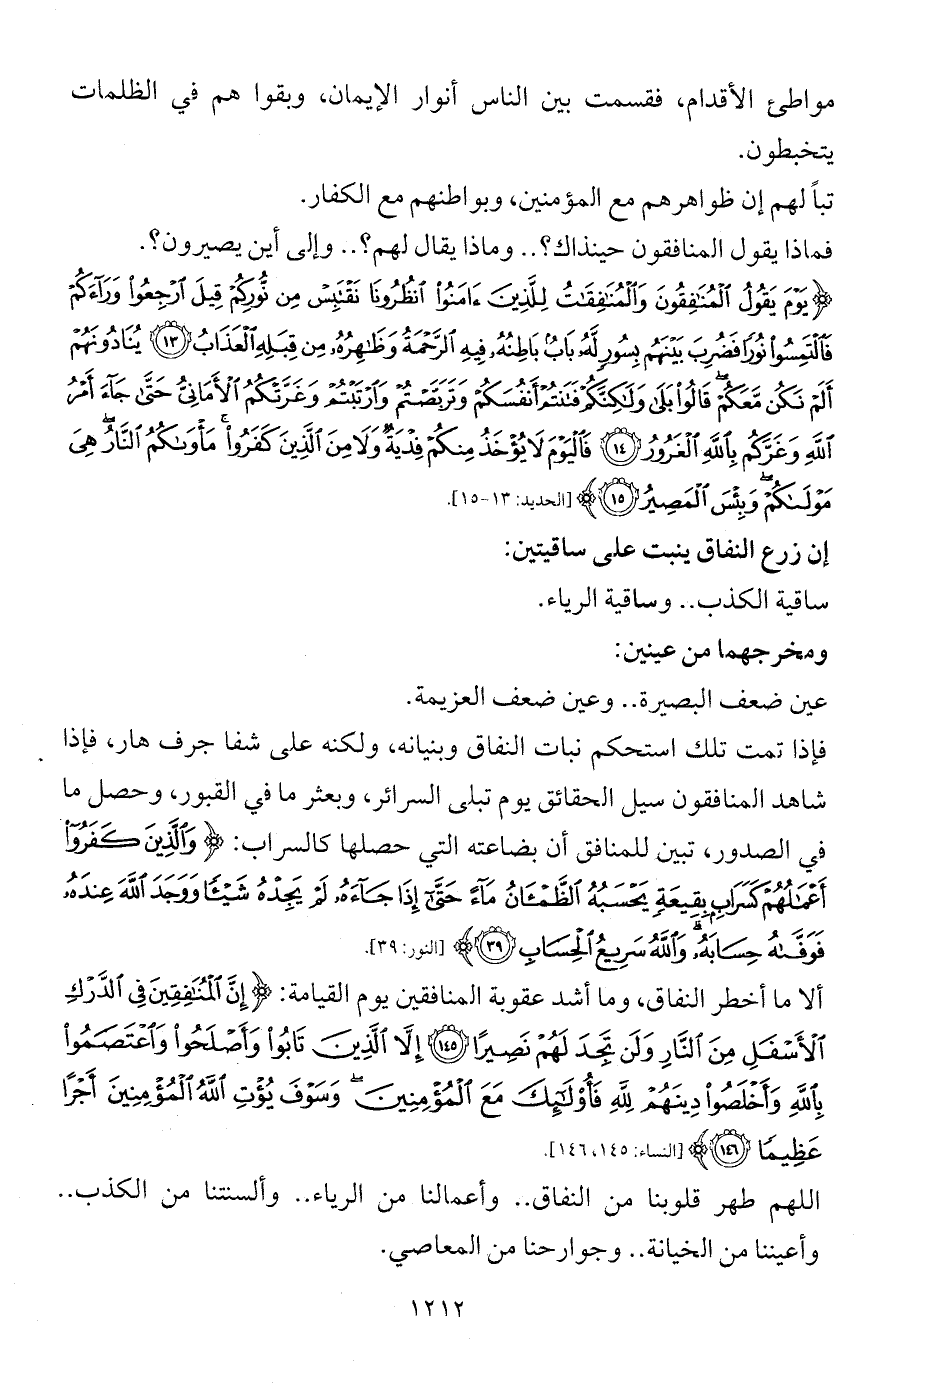 مواطئ الأقدام، فقسمت بين الناس أنوار الإيمان، وبقوا هم في الظلمات
يتخبطون.
تباً لهم إن ظواهرهم مع المؤمنين، وبواطنهم مع الكفار.
فماذا يقول المنافقون حينذاك؟.. وماذا يقال لهم؟.. وإلى أين يصيرون؟.
﴿يَوْمَ يَقُولُ الْمُنَافِقُونَ وَالْمُنَافِقَاتُ لِلَّذِينَ ءَامَنُوا انْظُرُونَا نَقْتَبِسْ مِن نُّورِكُمْ قِيلَ ارْجِعُوا وَرَاءَكُمْ
فَالْتَمِسُوا نُورًا فَضُرِبَ بَيْنَهُم بِسُورٍ لَّهُ بَابٌ بَاطِنُهُ فِيهِ الرَّحْمَةُ وَظَاهِرُهُ مِن قِبَلِهِ الْعَذَابُ ١٣ يُنَادُونَهُمْ
أَلَمْ نَكُن مَّعَكُمْ ۖ قَالُوا بَلَىٰ وَلَٰكِنَّكُمْ فَتَنتُمْ أَنفُسَكُمْ وَتَرَبَّصْتُمْ وَارْتَبْتُمْ وَغَرَّتْكُمُ الْأَمَانِيُّ حَتَّىٰ جَاءَ أَمْرُ
اللَّهِ وَغَرَّكُم بِاللَّهِ الْغَرُورُ ١٤ فَالْيَوْمَ لَا يُؤْخَذُ مِنكُمْ فِدْيَةٌ وَلَا مِنَ الَّذِينَ كَفَرُوا ۚ مَأْوَاكُمُ النَّارُ ۖ هِيَ
مَوْلَاكُمْ ۖ وَبِئْسَ الْمَصِيرُ ١٥﴾ [الحديد: ١٣-١٥].
إن زرع النفاق ينبت على ساقيتين:
ساقية الكذب.. وساقية الرياء.
ومخرجهما من عينين:
عين ضعف البصيرة.. وعين ضعف العزيمة.
فإذا تمت تلك استحكم نبات النفاق وبنيانه، ولكنه على شفا جرف هار، فإذا
شاهد المنافقون سيل الحقائق يوم تبلى السرائر، وبعثر ما في القبور، وحصل ما
في الصدور، تبين للمنافق أن بضاعته التي حصلها كالسراب: ﴿وَالَّذِينَ كَفَرُوا
أَعْمَالُهُمْ كَسَرَابٍ بِقِيعَةٍ يَحْسَبُهُ الظَّمْآنُ مَاءً حَتَّىٰ إِذَا جَاءَهُ لَمْ يَجِدْهُ شَيْئًا وَوَجَدَ اللَّهَ عِندَهُ
فَوَفَّاهُ حِسَابَهُ ۗ وَاللَّهُ سَرِيعُ الْحِسَابِ ٣٩﴾ [النور: ٣٩].
ألا ما أخطر النفاق، وما أشد عقوبة المنافقين يوم القيامة: ﴿إِنَّ الْمُنَافِقِينَ فِي الدَّرْكِ
الْأَسْفَلِ مِنَ النَّارِ وَلَن تَجِدَ لَهُمْ نَصِيرًا ١٤٥ إِلَّا الَّذِينَ تَابُوا وَأَصْلَحُوا وَاعْتَصَمُوا
بِاللَّهِ وَأَخْلَصُوا دِينَهُمْ لِلَّهِ فَأُولَٰئِكَ مَعَ الْمُؤْمِنِينَ ۖ وَسَوْفَ يُؤْتِ اللَّهُ الْمُؤْمِنِينَ أَجْرًا
عَظِيمًا ١٤٦﴾ [النساء: ١٤٥، ١٤٦].
اللهم طهر قلوبنا من النفاق.. وأعمالنا من الرياء.. وألسنتنا من الكذب..
وأعيننا من الخيانة.. وجوارحنا من المعاصي.
١٢١٢